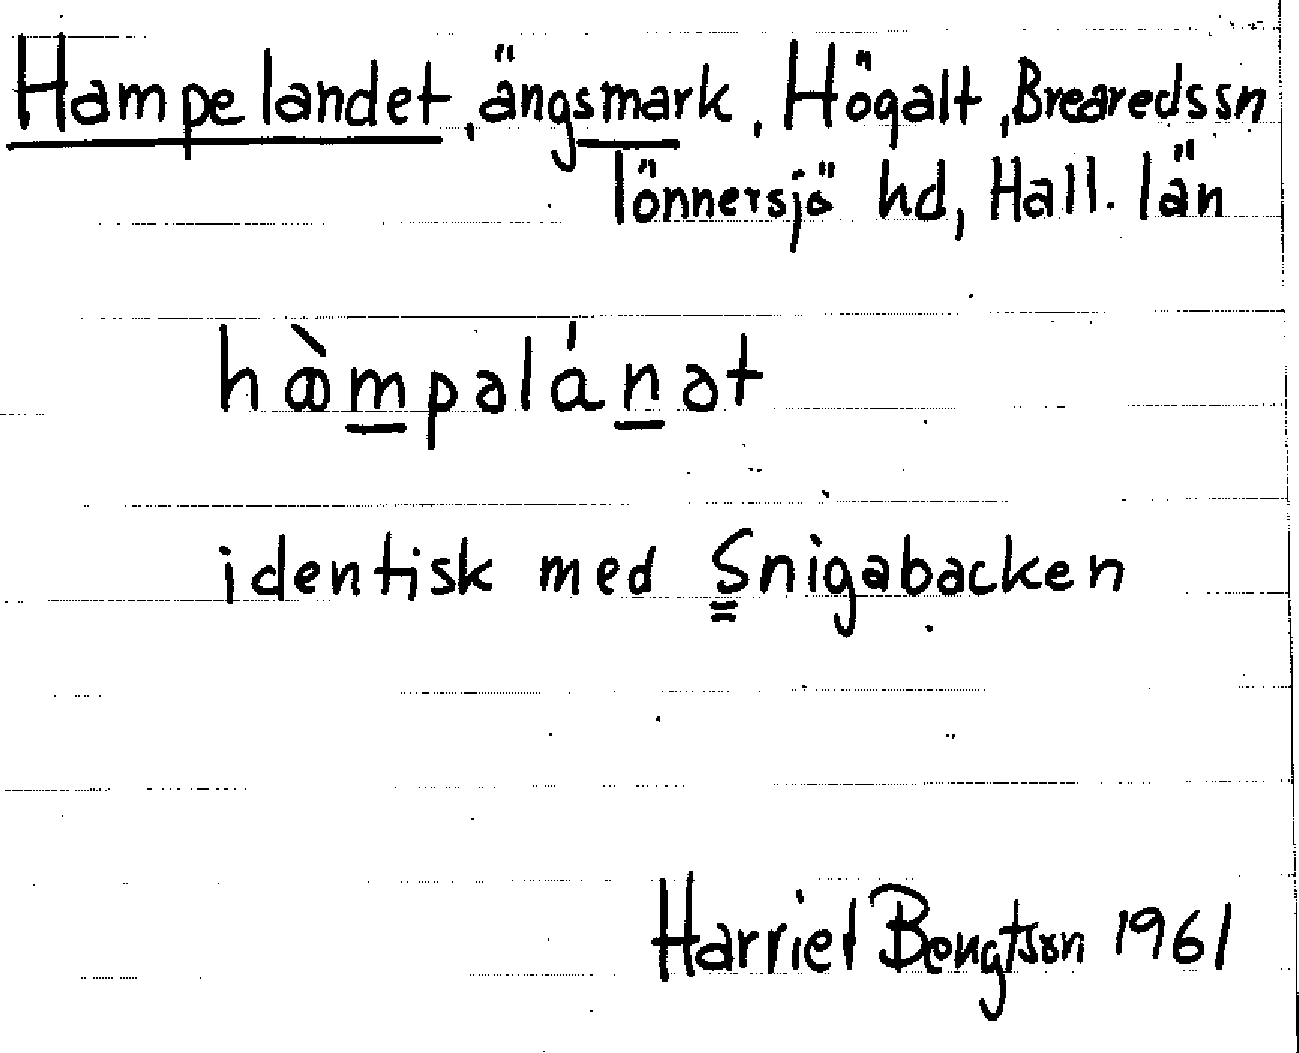 Hampelandet, ängsmark, Högalt, Breareds sn
Tönnersjö hd, Hall. län
hàmpalánat
identisk med Snigabacken
Harriet Bengtson 1961